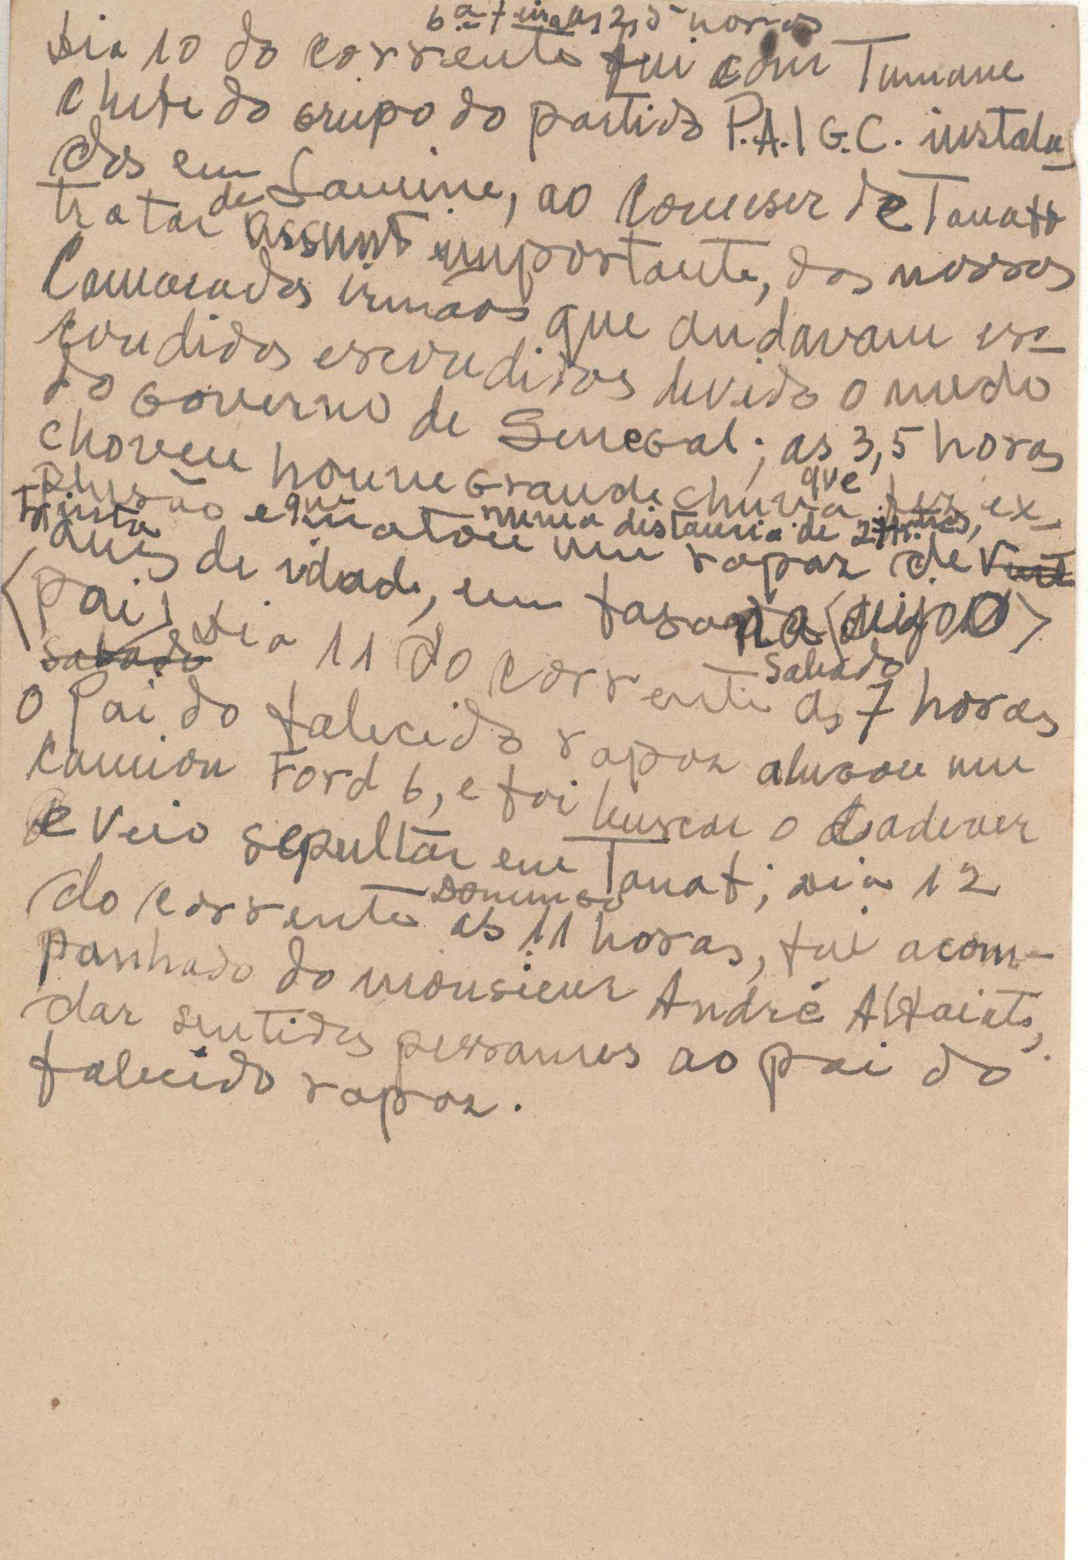 6ª feira as 2,5 horas
Dia 10 do corrente fui com Tumane
Chefe do Grupo do partido P.A.I G.C. instala_
dos em Samine, ao Comeser de Tanatt
tratar de assunt importante, dos nossos
Camaradas irmãos que andavam es_
condidos esconditos devido o medo
do Governo de Senegal; as 3,5 horas
choveu houve Grande chuva que fez ex_
plusão e que matou um rapaz de
numa distancia de
anus de idade, em
pai, Dia 11 do corrente Sabado as 7 horas
Sabado
O Pai do falecido rapaz alugou um
Camion Ford 6, e foi buscar o Cadaver
e veio sepultar em Tanaf; dia 12
do corrente Domingo as 11 horas, fui acom-
panhado do monsieur André
dar sentidos pessames ao pai do
falecido rapaz.